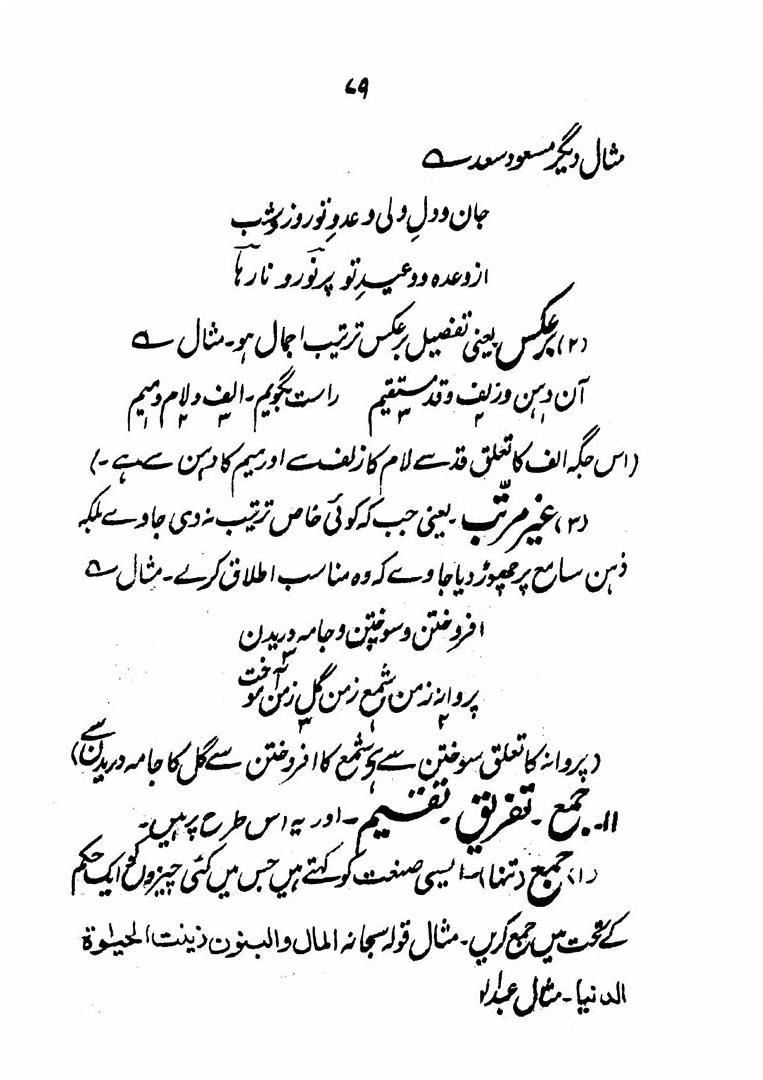 ۷۹
مثال دیگر مسعود سعد ؎
جان و دلِ ولی و عدوِ تو روز و شب
از وعدہ و وعیدِ تو پر نور و نارہا
(۲) برعکس یعنی تفصیل برعکس ترتیب اجمال ہو۔ مثال ؎
آن دہن و زلف و قد مستقیم راست بگویم۔ الف و لام و میم
(اس جگہ الف کا تعلق قد سے لام کا زلف سے اور میم کا دہن سے ہے۔)
(۳) غیر مرتّب۔ یعنی جب کہ کوئی خاص ترتیب نہ دی جاوے بلکہ
ذہن سامع پر چھوڑ دیا جاوے کہ وہ مناسب اطلاق کرے۔ مثال ؎
افروختن و سوختن و جامہ دریدن
پروانہ زمن شمع زمن گل زمن آموخت
(پروانہ کا تعلق سوختن سے ہے شمع کا افروختن سے گل کا جامہ دریدن سے)
۱۱۔ جمع۔ تفریق۔ تقسیم۔ اور یہ اس طرح پر ہیں۔
(۱) جمع (تنہا)۔ ایسی صنعت کو کہتے ہیں جس میں کئی چیزوں کو ایک حکم
کے تحت میں جمع کریں۔ مثال قولہ سبحانہ المال والبنون زینت الحیٰوۃ
الدنیا۔ مثال